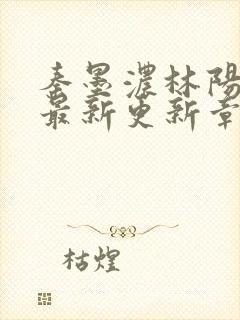 秦墨濃林陽
最新更新章
枯煌